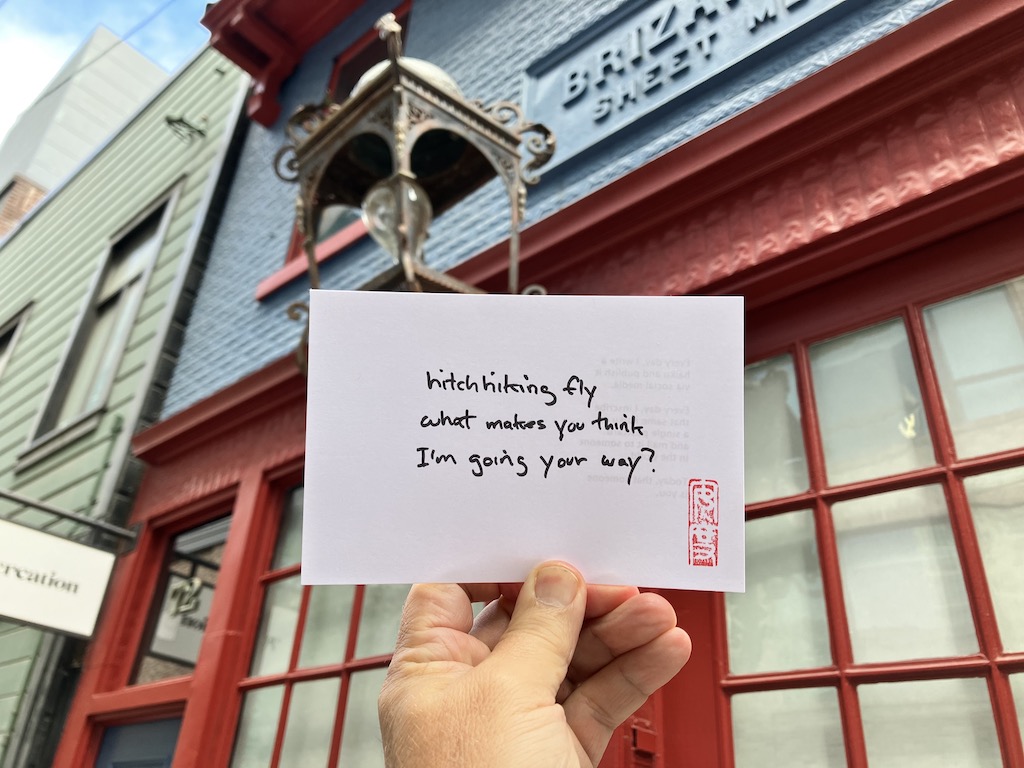 BRIZA
SHEET ME
hitchhiking fly
what makes you think
I'm going your way?
creation